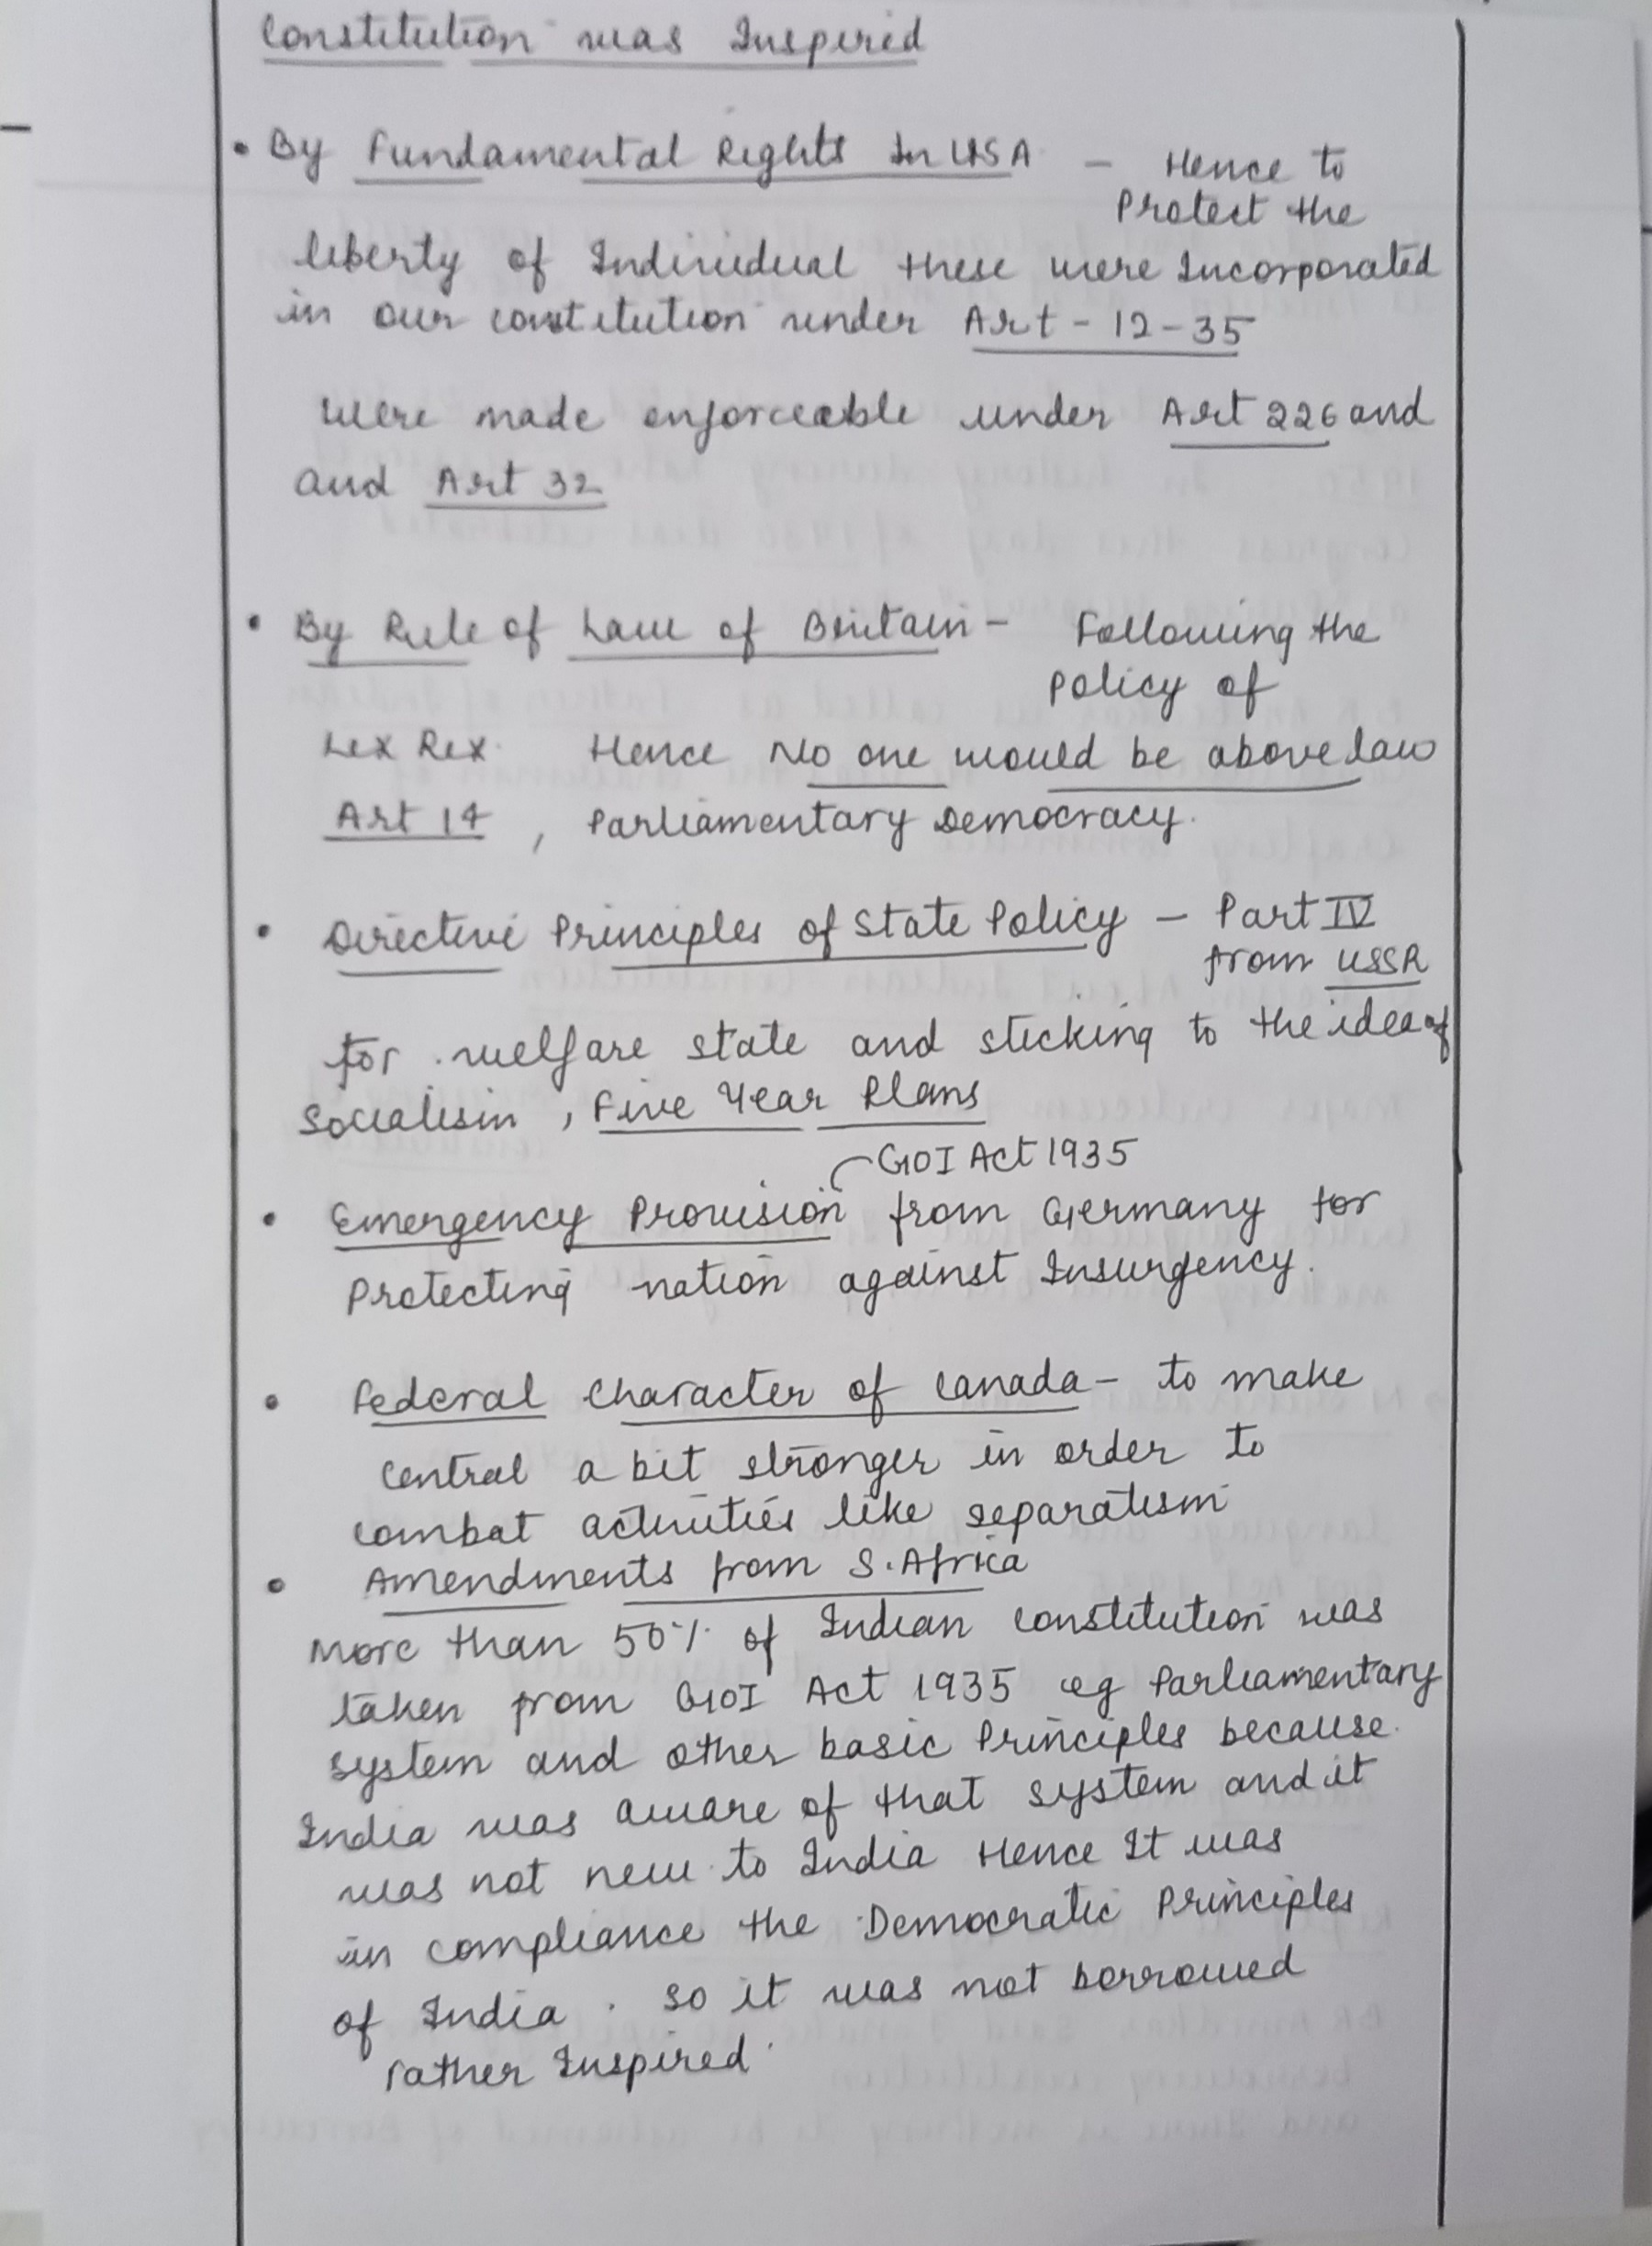 Constitution was Inspired
• By Fundamental Rights In USA – Hence to
Protect the
liberty of Individual these were Incorporated
in our constitution under Art - 12-35
were made enforceable under Art 226 and
and Art 32
• By Rule of Law of Britain – Following the
policy of
Lex Rex. Hence No one would be above law
Art 14 , Parliamentary Democracy.
• Directive Principles of State Policy – Part IV
from USSR
for welfare state and sticking to the idea of
Socialism , Five Year Plans
GOI Act 1935
• Emergency Provision from Germany for
Protecting nation against Insurgency.
• Federal Character of Canada – to make
central a bit stronger in order to
combat activities like separatism
• Amendments from S. Africa
More than 50% of Indian constitution was
taken from GOI Act 1935 eg Parliamentary
system and other basic Principles because
India was aware of that system and it
was not new to India Hence It was
in compliance the Democratic Principles
of India . so it was not borrowed
rather Inspired